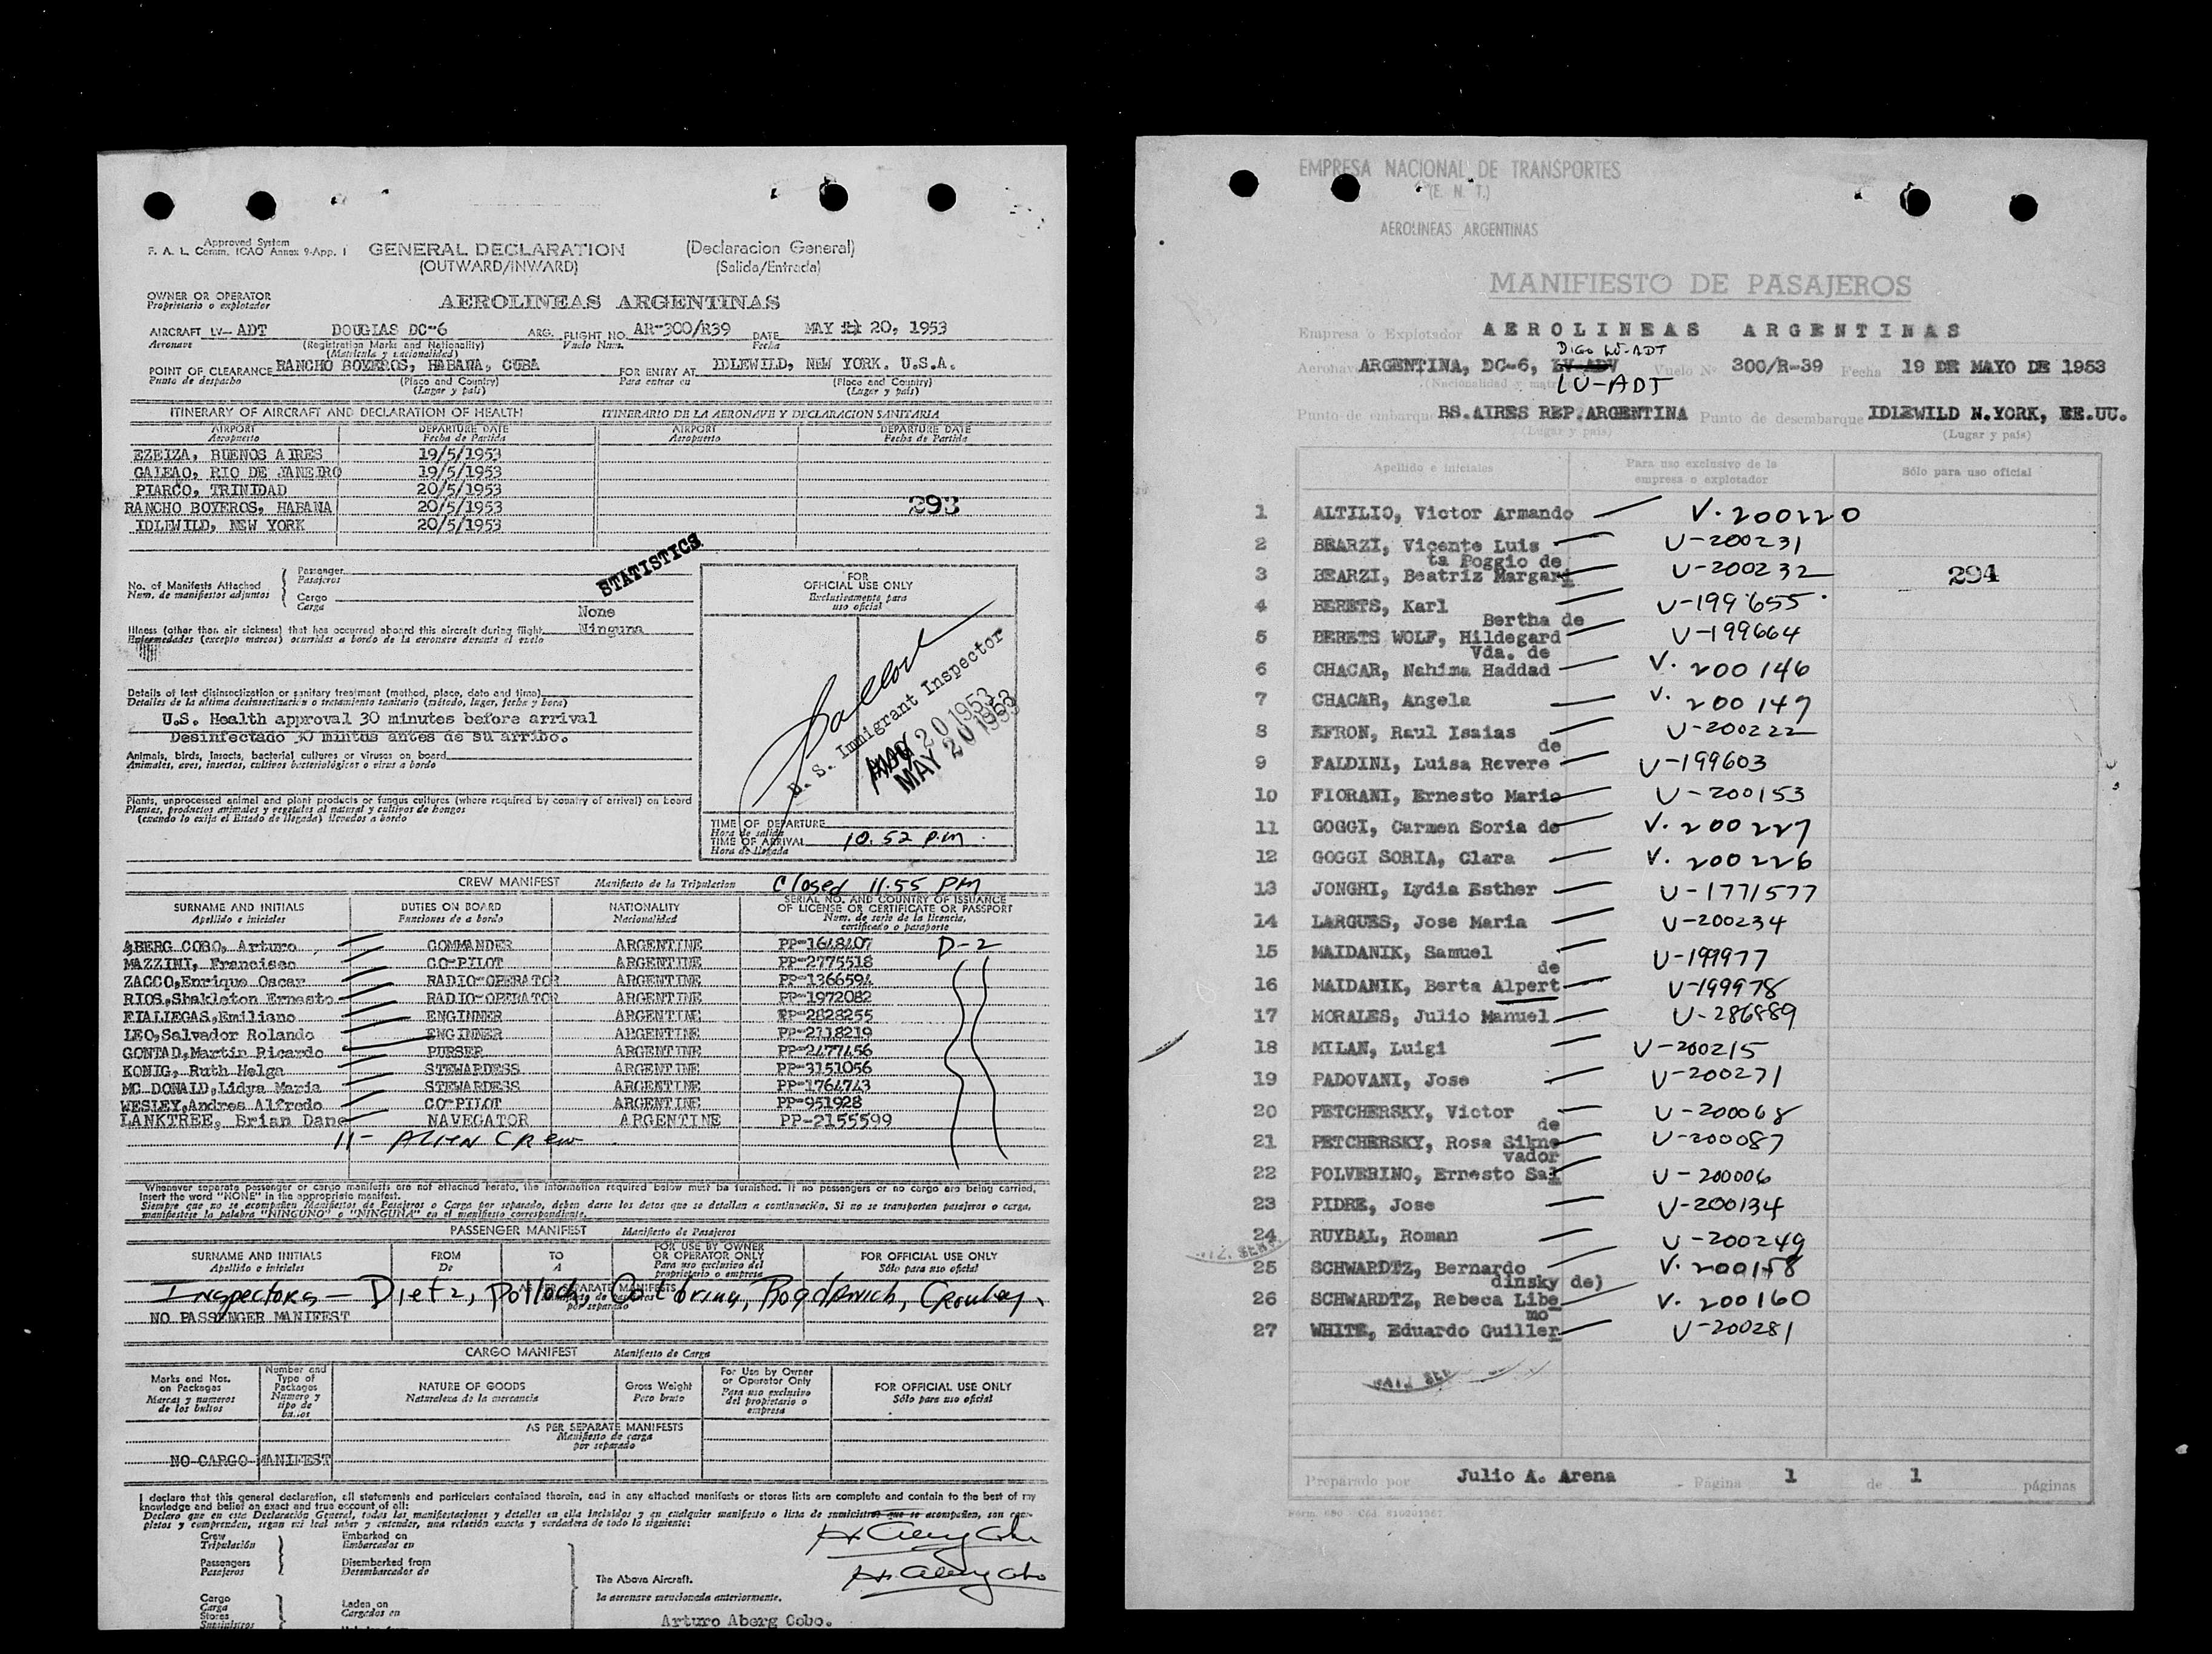 Approved System
F. A. L. Comm. ICAO Annex 9-App. I
GENERAL DECLARATION
(OUTWARD/INWARD)
(Declaracion General)
(Salida/Entrada)
OWNER OR OPERATOR
Propietario o explotador
AEROLINEAS ARGENTINAS
AIRCRAFT LV- ADT DOUGLAS DC-6 ARG. FLIGHT NO. AR-300/R39 DATE MAY 20, 1953
Aeronave (Registration Marks and Nationality) Vuelo Num. Fecha
(Matricula y nacionalidad)
POINT OF CLEARANCE RANCHO BOYEROS, HABANA, CUBA FOR ENTRY AT IDLEWILD, NEW YORK. U.S.A.
Punto de despacho (Place and Country) Para entrar en (Place and Country)
(Lugar y pais) (Lugar y pais)
ITINERARY OF AIRCRAFT AND DECLARATION OF HEALTH ITINERARIO DE LA AERONAVE Y DECLARACION SANITARIA
AIRPORT DEPARTURE DATE AIRPORT DEPARTURE DATE
Aeropuerto Fecha de Partida Aeropuerto Fecha de Partida
EZEIZA, BUENOS AIRES 19/5/1953
GALEAO, RIO DE JANEIRO 19/5/1953
PIARCO, TRINIDAD 20/5/1953
RANCHO BOYEROS, HABANA 20/5/1953 293
IDLEWILD, NEW YORK 20/5/1953
STATISTICS
No. of Manifests Attached
Num. de manifiestos adjuntos
Passenger
Pasajeros
Cargo
Carga
None
Illness (other than air sickness) that has occurred aboard this aircraft during flight Ninguna
Enfermedades (excepto mareos) ocurridas a bordo de la aeronave durante el vuelo
Details of last disinsectization or sanitary treatment (method, place, date and time)
Detalles de la ultima desinsectizacion o tratamiento sanitario (método, lugar, fecha y hora)
U.S. Health approval 30 minutes before arrival
Desinfectado 30 mintus antes de su arribo.
Animals, birds, insects, bacterial cultures or viruses on board
Animales, aves, insectos, cultivos bacteriológicos o virus a bordo
Plants, unprocessed animal and plant products or fungus cultures (where required by country of arrival) on board
Plantas, productos animales y vegetales al natural y cultivos de hongos
(cuando lo exija el Estado de llegada) llevados a bordo
FOR
OFFICIAL USE ONLY
Exclusivamente para
uso oficial
U. S. Immigrant Inspector
MAY 20 1953
MAY 20 1953
TIME OF DEPARTURE
Hora de salida
TIME OF ARRIVAL 10.52 P.M.
Hora de llegada
CREW MANIFEST Manifiesto de la Tripulacion Closed 11.55 PM
SURNAME AND INITIALS DUTIES ON BOARD NATIONALITY SERIAL NO. AND COUNTRY OF ISSUANCE
OF LICENSE OR CERTIFICATE OR PASSPORT
Apellido e iniciales Funciones de a bordo Nacionalidad Num. de serie de la licencia,
certificado o pasaporte
ABERG COBO, Arturo COMMANDER ARGENTINE PP-1648407 D-2
MAZZINI, Francisco CO-PILOT ARGENTINE PP-2775518
ZACCO,Enrique Oscar RADIO-OPERATOR ARGENTINE PP-1366594
RIOS,Shakleton Ernesto RADIO-OPERATOR ARGENTINE PP-1972082
FIALIEGAS,Emiliano ENGINNER ARGENTINE PP-2828255
LEO,Salvador Rolando ENGINNER ARGENTINE PP-2718219
GONTAD,Martin Ricardo PURSER ARGENTINE PP-2477456
KONIG, Ruth Helga STEWARDESS ARGENTINE PP-3151056
MC DONALD,Lidya Maria STEWARDESS ARGENTINE PP-1764743
WESLEY,Andres Alfredo CO-PILOT ARGENTINE PP-951928
LANKTREE, Brian Dane NAVEGATOR ARGENTINE PP-2155599
11- Alien Crew
Whenever separate passenger or cargo manifests are not attached hereto, the information required below must be furnished. If no passengers or no cargo are being carried,
insert the word "NONE" in the appropriate manifest.
Siempre que no se acompañen Manifiestos de Pasajeros o Carga por separado, deben darse los datos que se detallan a continuación. Si no se transportan pasajeros o carga,
manifiestese la palabra "NINGUNO" o "NINGUNA" en el manifiesto correspondiente.
PASSENGER MANIFEST Manifiesto de Pasajeros
SURNAME AND INITIALS FROM TO FOR USE BY OWNER
OR OPERATOR ONLY FOR OFFICIAL USE ONLY
Apellido e iniciales De A Para uso exclusivo del
propietario o empresa Sólo para uso oficial
AS PER SEPARATE MANIFESTS
por separado
Inspectors - Dietz, Pollock,
NO PASSENGER MANIFEST
CARGO MANIFEST Manifiesto de Carga
Marks and Nos.
on Packages
Marcas y numeros
de los bultos
Number and
Type of
Packages
Numero y
tipo de
bultos
NATURE OF GOODS
Naturaleza de la mercancia
Gross Weight
Peso bruto
For Use by Owner
or Operator Only
Para uso exclusivo
del propietario o
empresa
FOR OFFICIAL USE ONLY
Sólo para uso oficial
AS PER SEPARATE MANIFESTS
Manifiesto de carga
por separado
NO CARGO MANIFEST
I declare that this general declaration, all statements and particulars contained therein, and in any attached manifests or stores lists are complete and contain to the best of my
knowledge and belief an exact and true account of all:
Declaro que en esta Declaración General, todas las manifestaciones y detalles en ella incluidos y en cualquier manifiesto o lista de suministros que se acompañen, son com-
pletos y comprenden, segun mi leal saber y entender, una relación exacta y verdadera de todo lo siguiente:
Crew
Tripulación
Embarked on
Embarcados en
Passengers
Pasajeros
Disembarked from
Desembarcados de
Cargo
Carga
Stores
Suministros
Laden on
Cargados en
The Above Aircraft.
la aeronave mencionada anteriormente.
Arturo Aberg Cobo.
EMPRESA NACIONAL DE TRANSPORTES
(E. N. T.)
AEROLINEAS ARGENTINAS
MANIFIESTO DE PASAJEROS
Empresa o Explotador AEROLINEAS ARGENTINAS
DIGO LV-ADT
Aeronave ARGENTINA, DC-6, LV-ADV Vuelo Nº 300/R-39 Fecha 19 DE MAYO DE 1953
LV-ADT
Punto de embarque BS.AIRES REP.ARGENTINA Punto de desembarque IDLEWILD N.YORK, EE.UU.
(Lugar y país) (Lugar y país)
Apellido e iniciales Para uso exclusivo de la
empresa o explotador Sólo para uso oficial
1 ALTILIO, Victor Armando V. 200220
2 BEARZI, Vicente Luis V-200231
ta Poggio de
3 BEARZI, Beatriz Margari V-200232 294
4 BERETS, Karl V-199655
Bertha de
5 BERETS WOLF, Hildegard V-199664
Vda. de
6 CHACAR, Nahima Haddad V. 200146
7 CHACAR, Angela V. 200147
8 EFRON, Raul Isaias V-200222
de
9 FALDINI, Luisa Revere V-199603
10 FIORANI, Ernesto Mario V-200153
11 GOGGI, Carmen Soria de V. 200227
12 GOGGI SORIA, Clara V. 200226
13 JONGHI, Lydia Esther V-1771577
14 LARGUES, Jose Maria V-200234
15 MAIDANIK, Samuel V-199977
de
16 MAIDANIK, Berta Alpert V-199978
17 MORALES, Julio Manuel V-286889
18 MILAN, Luigi V-200215
19 PADOVANI, Jose V-200271
20 PETCHERSKY, Victor V-200068
de
21 PETCHERSKY, Rosa Sikne V-200087
vador
22 POLVERINO, Ernesto Sal V-200006
23 PIDRE, Jose V-200134
24 RUYBAL, Roman V-200249
25 SCHWARDTZ, Bernardo V. 200158
dinsky de)
26 SCHWARDTZ, Rebeca Libe V. 200160
mo
27 WHITE, Eduardo Guiller V-200281
Preparado por Julio A. Arena Página 1 de 1 páginas